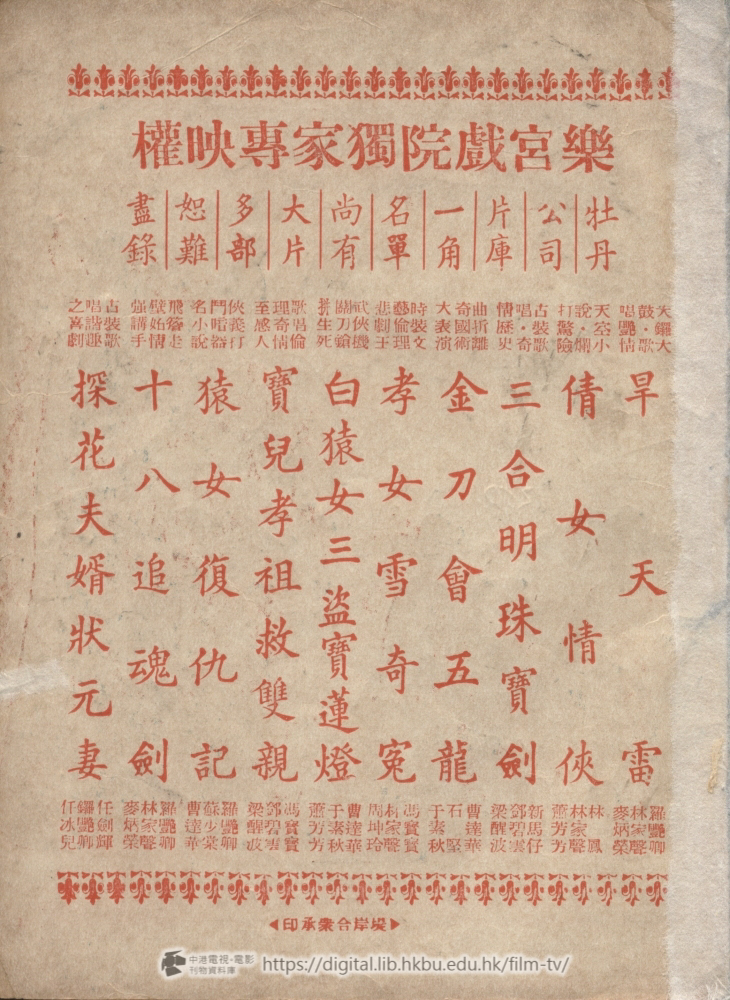 樂宮戲院獨家專映權
牡丹
公司
片庫
一角
名單
尚有
大片
多部
恕難
盡錄
天鑼大
鼓·歌
唱艷情
旱天雷
羅艷卿
林家聲
麥炳榮
天空小
說·
打驚險
倩女情俠
林鳳
林家聲
蕭芳芳
古裝歌
唱·奇
情歷史
三合明珠寶劍
新馬仔
鄧碧雲
梁醒波
曲折離
奇國術
大表演
金刀會五龍
曹達華
石堅
于素秋
時裝文
藝倫理
悲劇王
孝女雪奇冤
馮寶寶
林家聲
周坤玲
武俠機
關刀
拚生死
白猿女三盜寶蓮燈
曹達華
于素秋
蕭芳芳
歌唱倫
理奇情
至感人
寶兒孝祖救雙親
馮寶寶
鄧碧雲
梁醒波
俠義打
鬥
名小說
猿女復仇記
羅艷卿
蘇少棠
曹達華
飛簷走
壁
強講手
十八追魂劍
羅艷卿
林家聲
麥炳榮
古裝歌
唱諧趣
之喜劇
探花夫婿狀元妻
任劍輝
羅艷卿
任冰兒
堤岸合衆承印
中港電視·電影
刊物資料庫
https://digital.lib.hkbu.edu.hk/film-tv/